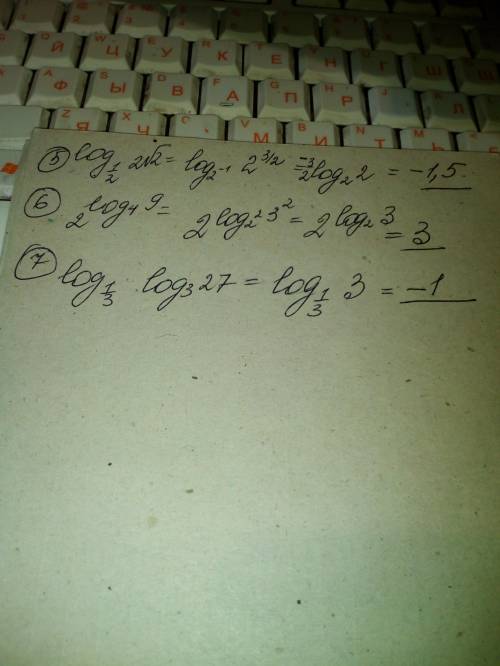 Й Ц У К Е Н Г Ш
Ф Ы В А П Р
Я Ч С М И
⑤ log_{1/2} 2√2 = log_{2^{-1}} 2^{3/2} = -3/2 log_2 2 = -1,5.
⑥ 2^{log_4 9} = 2^{log_{2^2} 3^2} = 2^{log_2 3} = 3
⑦ log_{1/3} · log_3 27 = log_{1/3} 3 = -1